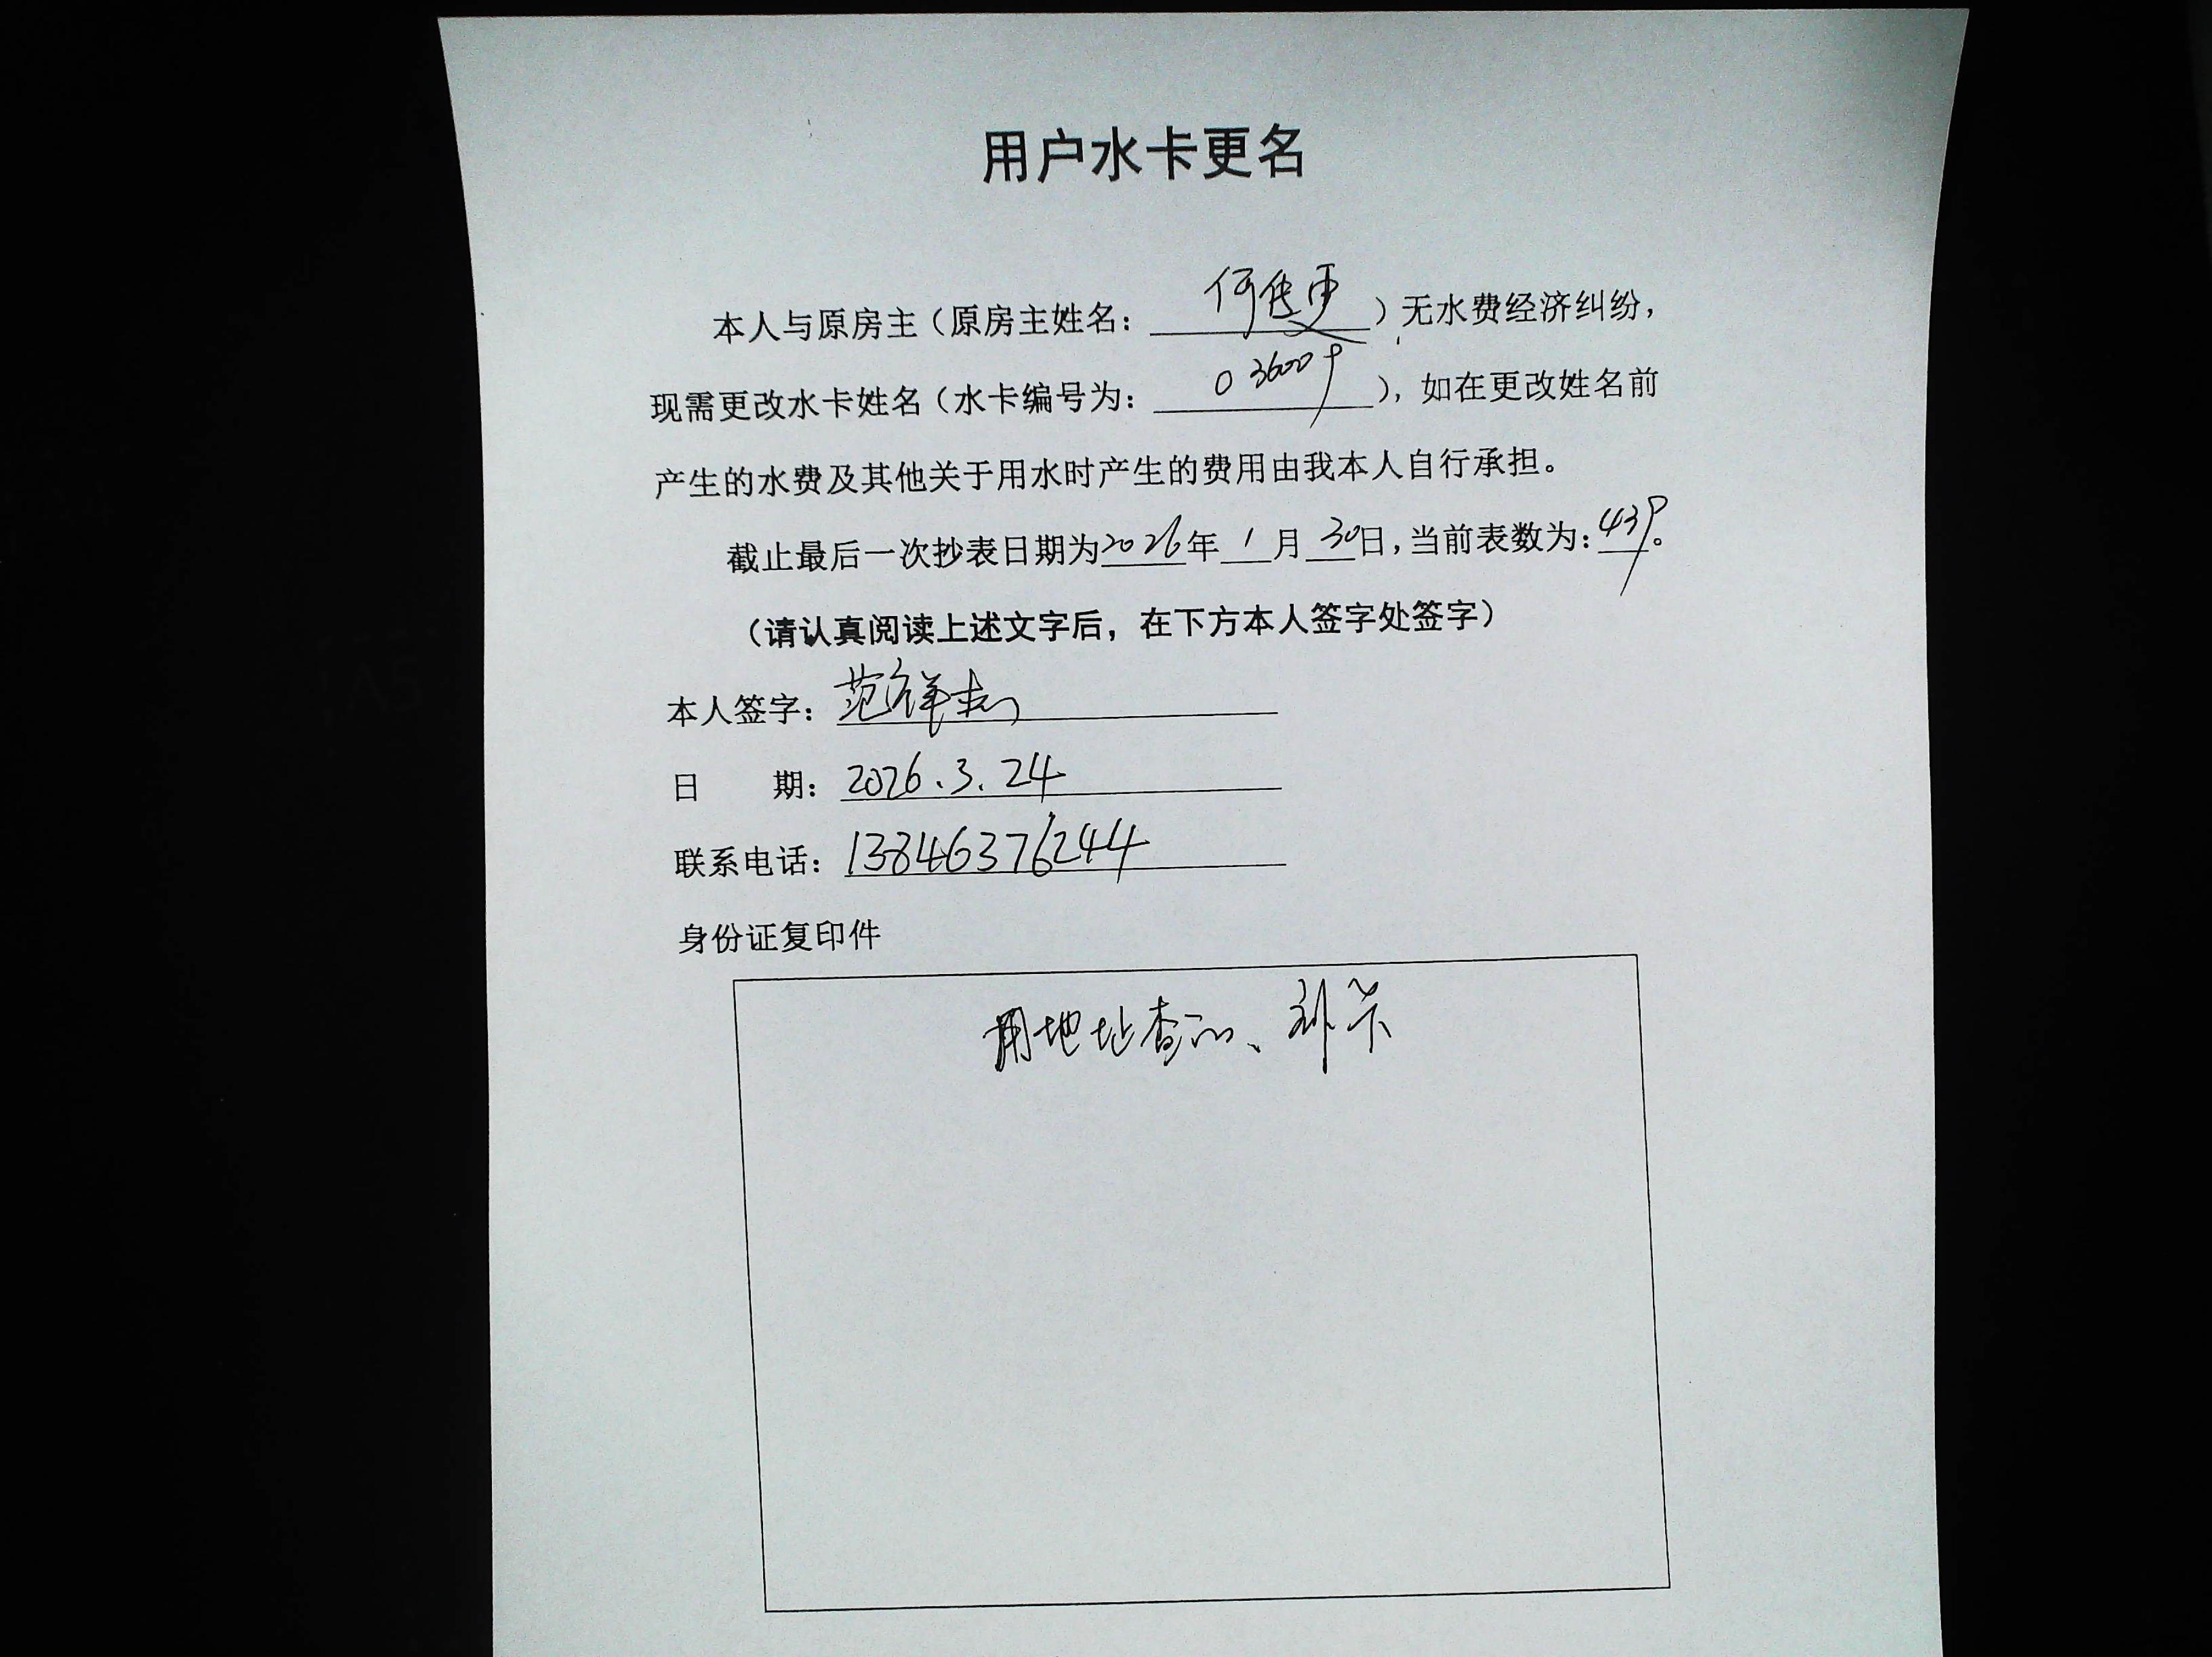 用户水卡更名
本人与原房主（原房主姓名：何佳更）无水费经济纠纷，
现需更改水卡姓名（水卡编号为：036009），如在更改姓名前
产生的水费及其他关于用水时产生的费用由我本人自行承担。
截止最后一次抄表日期为2026年1月30日，当前表数为：439。
（请认真阅读上述文字后，在下方本人签字处签字）
本人签字：范祥
日 期：2026.3.24
联系电话：13846376244
身份证复印件
用地址查的、补卡